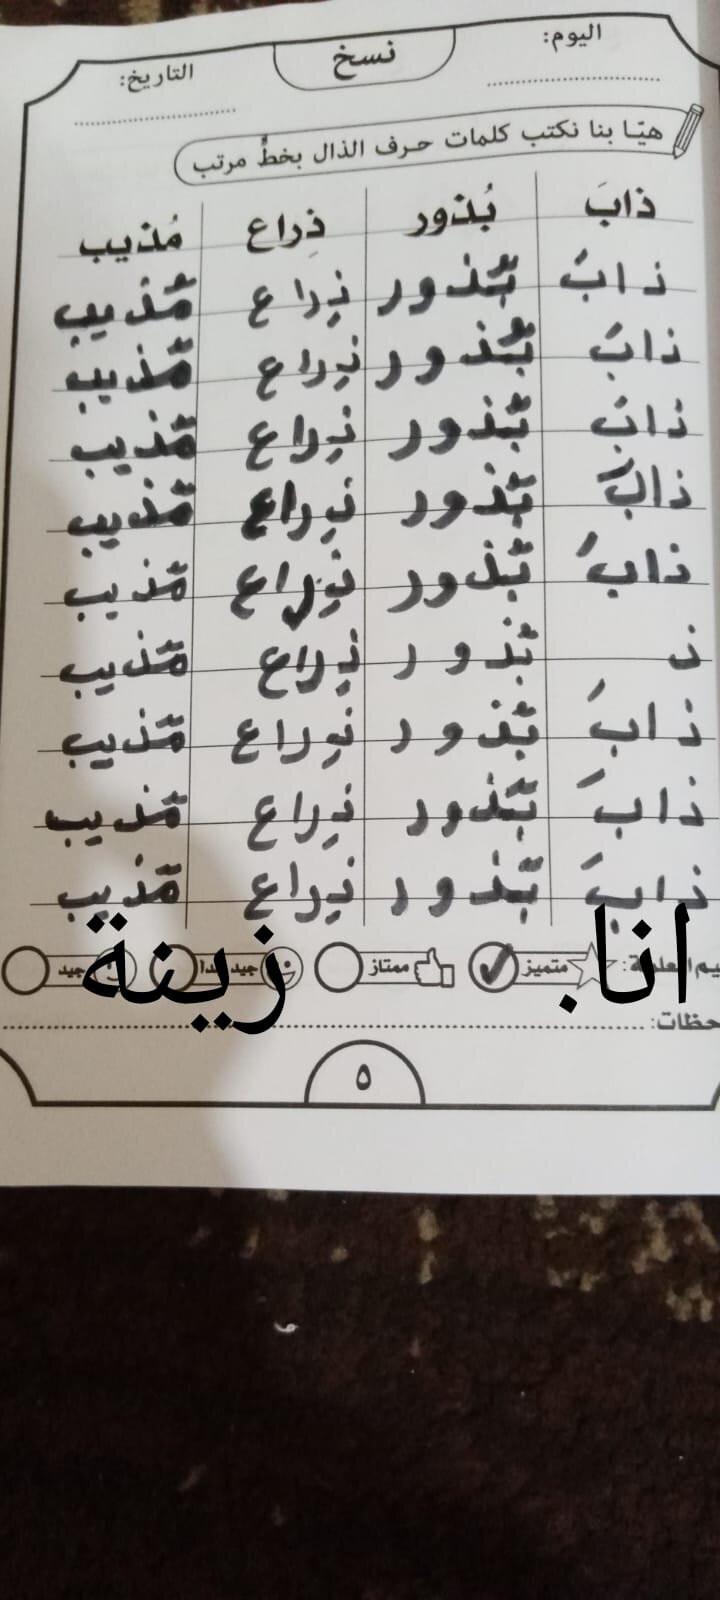 اليوم: نسخ التاريخ:
هيّا بنا نكتب كلمات حرف الذال بخطٍّ مرتب
ذابَ بُذور ذِراع مُذيب
ذابَ بُذور ذِراع مُذيب
ذابَ بُذور ذِراع مُذيب
ذابَ بُذور ذِراع مُذيب
ذابَ بُذور ذِراع مُذيب
ذابَ بُذور ذِراع مُذيب
ذ بُذور ذِراع مُذيب
ذابَ بُذور ذِراع مُذيب
ذابَ بُذور ذِراع مُذيب
ذابَ بُذور ذِراع مُذيب
انا. زينة
متميز ممتاز جيد جدا جيد
حظات:
٥